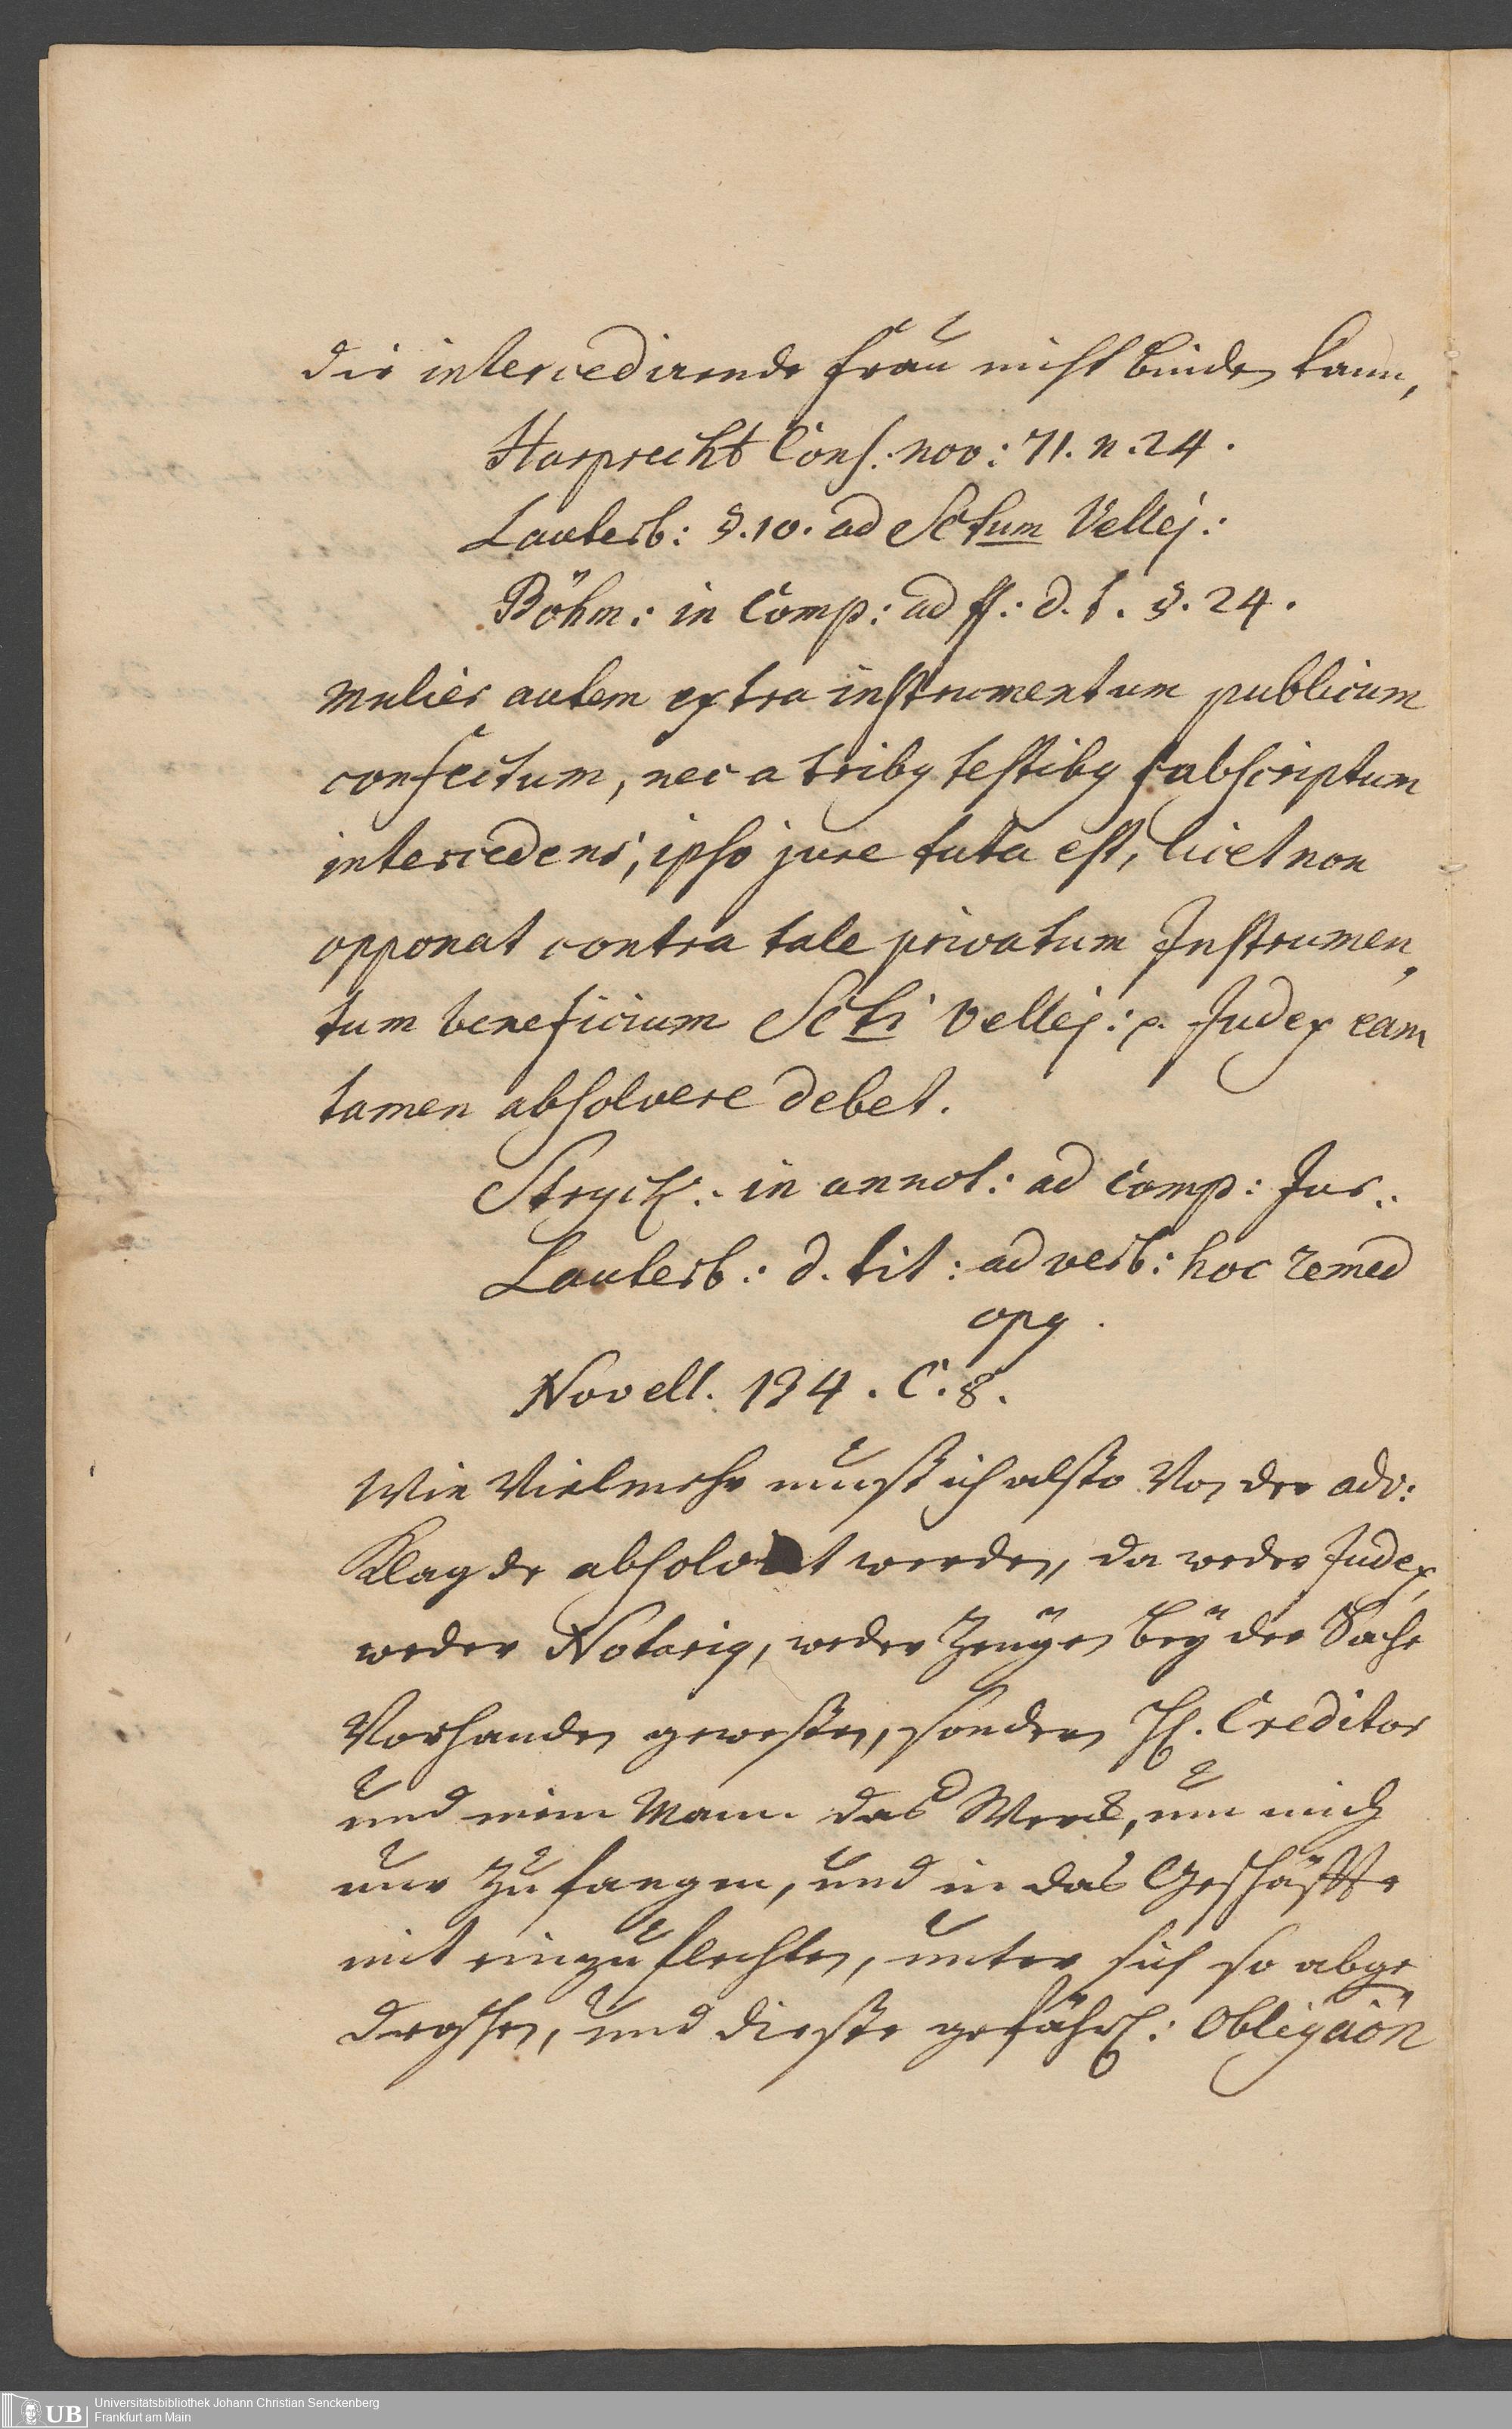 die intercedirende frau nicht binden kann,
Harprecht Cons: nov: 71. n. 24.
Lauterb: §. 10. ad SCtum Vellej:
Böhm: in Comp: ad ff: d. t. §. 24.
mulier autem extra instrumentum publicum
confectum, nec a tribꝰ testibꝰ subscriptum
intercedens, ipso jure tuta est, licet non
opponat contra tale privatum Instrumen„
tum beneficium SCti Vellej: p. Judex eam
tamen absolvere debet.
Stryck: in annot: ad Comp: Jur:
Lauterb: d. tit: ad verb: hoc remed
opꝰ.
Novell. 134. C. 8.
Wie Vielmehr muß ich alßo Von der adv:
Klag de absolvirt werden, da weder Judex,
weder Notariꝰ, weder Zeugen bey der Sache
Vorhanden geweßen, sondern H. Creditor
und mein Mann das Werck, um mich
nur zu fangen, und in das Geschäffte
mit einzuflechten, unter sich so abge„
droschen, und dieße gefährl: Obligaõn